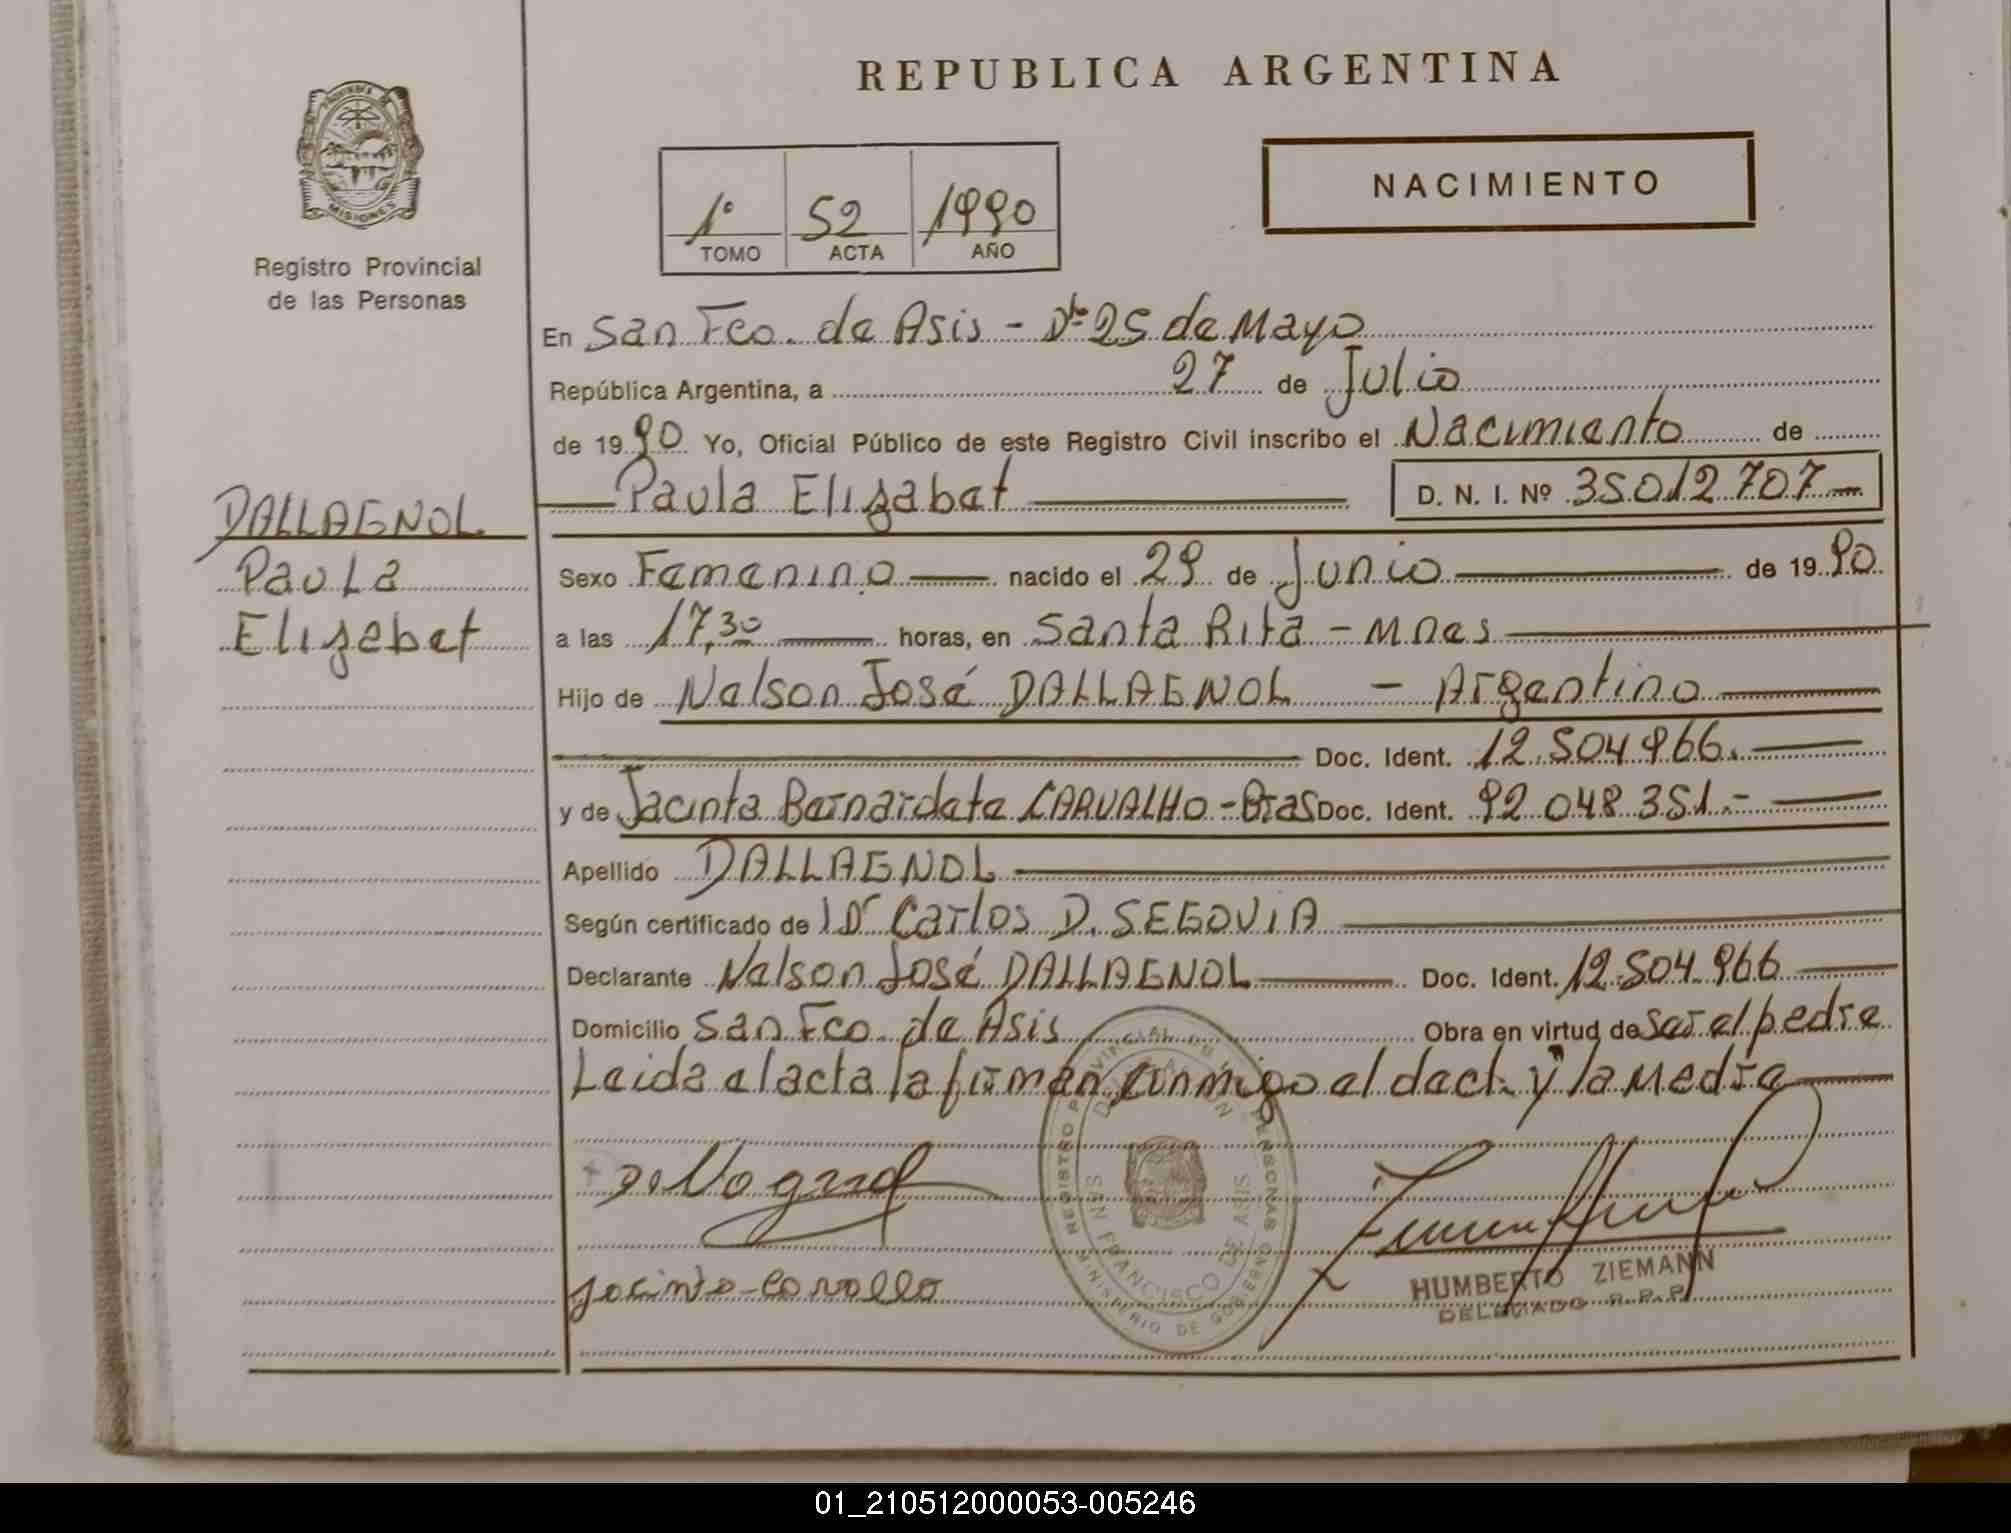 REPUBLICA ARGENTINA
PROVINCIA DE
MISIONES
Registro Provincial
de las Personas
1° 52 1990
TOMO ACTA AÑO
NACIMIENTO
En San Fco. de Asis - Dto 25 de Mayo
República Argentina, a 27 de Julio
de 1990 Yo, Oficial Público de este Registro Civil inscribo el Nacimiento de
Paula Elizabet D. N. I. Nº 35012707-
DALLAGNOL
Paula
Elizabet
Sexo Femenino nacido el 29 de Junio de 1990
a las 17,30 horas, en Santa Rita - Mnes
Hijo de Nelson José DALLAGNOL - Argentino
Doc. Ident. 12.504.966.
y de Jacinta Bernardete CARVALHO - Bras Doc. Ident. 92.048.351.-
Apellido DALLAGNOL
Según certificado de Dr Carlos D. SEGOVIA
Declarante Nelson José DALLAGNOL Doc. Ident. 12.504.966
Domicilio San Fco. de Asis Obra en virtud de ser el pedre
Leida el acta la firman conmigo el decl. y la Medre
REGISTRO PROVINCIAL DE LAS PERSONAS
DELEGACION
SAN FRANCISCO DE ASIS
MINISTERIO DE GOBIERNO
HUMBERTO ZIEMANN
DELEGADO R.P.P.
01_210512000053-005246